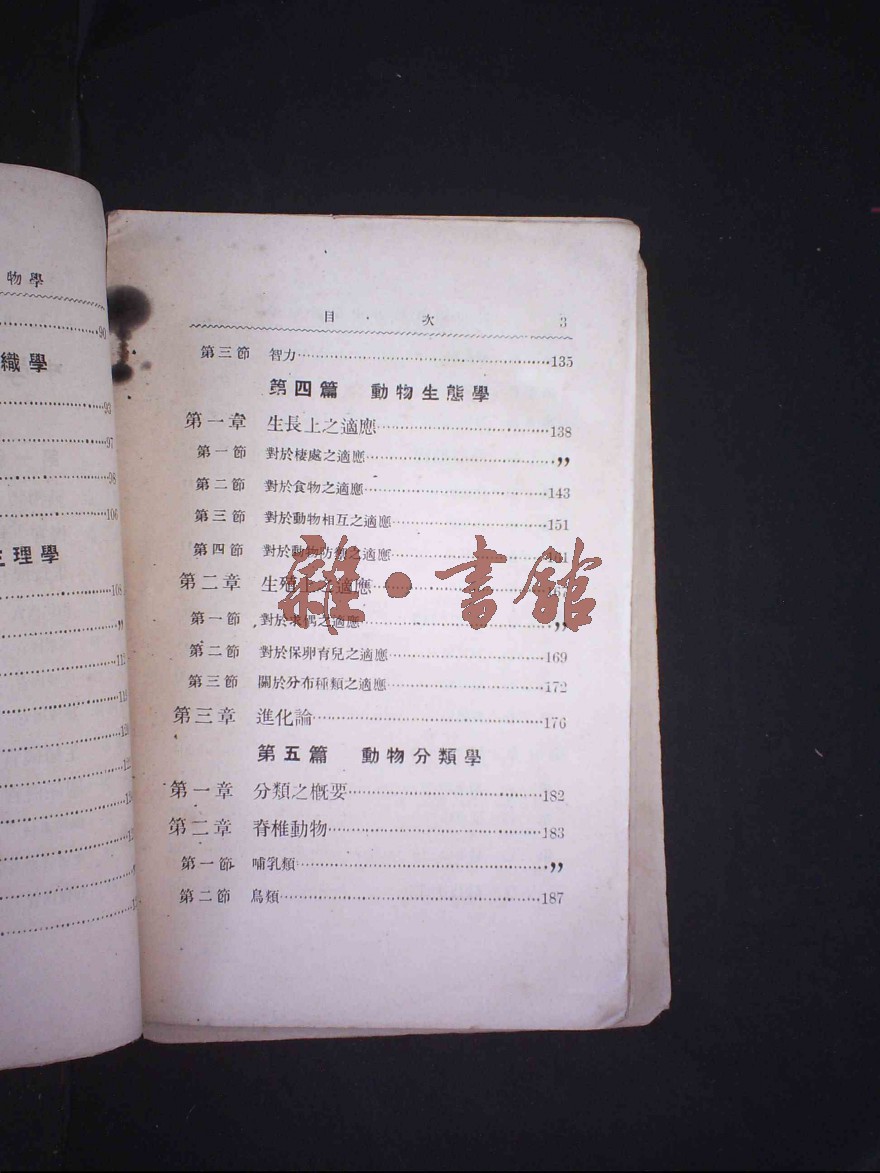 物學
90
織學
93
97
98
106
生理學
108
”
目 · 次 3
第三節 智力……135
第四篇 動物生態學
第一章 生長上之適應……138
第一節 對於棲處之適應……”
第二節 對於食物之適應……143
第三節 對於動物相互之適應……151
第四節 對於動物防禦之適應……161
第二章 生殖上之適應……167
第一節 對於求偶之適應……”
第二節 對於保卵育兒之適應……169
第三節 關於分布種類之適應……172
第三章 進化論……176
第五篇 動物分類學
第一章 分類之概要……182
第二章 脊椎動物……183
第一節 哺乳類……”
第二節 鳥類……187
雜·書館